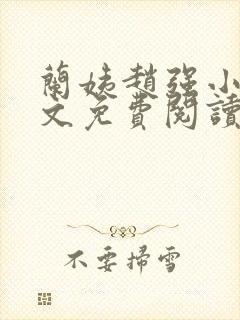 蘭姨趙強小
文免費閱讀
不要掃雪